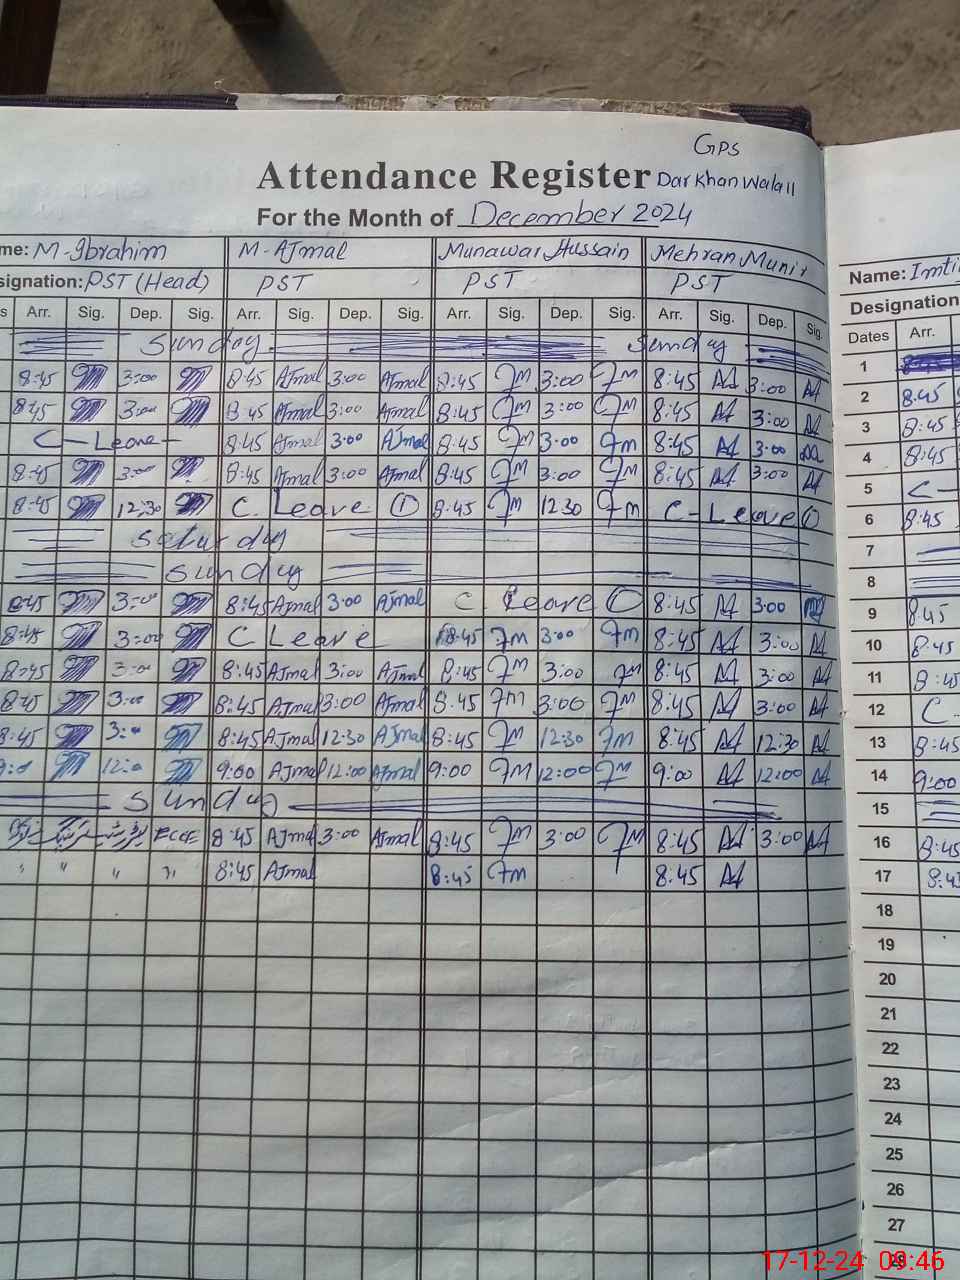 GPS
Attendance Register Darkhanwala II
For the Month of December 2024
me: M-Ibrahim M-Ajmal Munawar Hussain Mehran Munir Name: Imti
signation: PST (Head) PST PST PST Designation
s Arr. Sig. Dep. Sig. Arr. Sig. Dep. Sig. Arr. Sig. Dep. Sig. Arr. Sig. Dep. Sig. Dates Arr.
Sunday Sunday 1
8:45 3:00 8:45 Ajmal 3:00 Ajmal 8:45 3:00 8:45 3:00 2 8:45
8:45 3:00 8:45 Ajmal 3:00 Ajmal 8:45 3:00 8:45 3:00 3 8:45
C-Leave- 8:45 Ajmal 3:00 Ajmal 8:45 3:00 8:45 3:00 4 8:45
8:45 3:00 8:45 Ajmal 3:00 Ajmal 8:45 3:00 8:45 3:00 5 C-
8:45 12:30 C. Leave ① 8:45 12:30 C-Leave ① 6 8:45
Saturday 7
Sunday 8
8:45 3:00 8:45 Ajmal 3:00 Ajmal C. Leave ① 8:45 3:00 9 8:45
8:45 3:00 C Leave 8:45 3:00 8:45 3:00 10 8:45
8:45 3:00 8:45 Ajmal 3:00 Ajmal 8:45 3:00 8:45 3:00 11 8:45
8:45 3:00 8:45 Ajmal 3:00 Ajmal 8:45 3:00 8:45 3:00 12 C-
8:45 3:00 8:45 Ajmal 12:30 Ajmal 8:45 12:30 8:45 12:30 13 8:45
9:00 12:00 9:00 Ajmal 12:00 Ajmal 9:00 12:00 9:00 12:00 14 9:00
Sunday 15
ECCE 8:45 Ajmal 3:00 Ajmal 8:45 3:00 8:45 3:00 16 8:45
" " " " 8:45 Ajmal 8:45 8:45 17 8:45
18
19
20
21
22
23
24
25
26
27
28
17-12-24 09:46